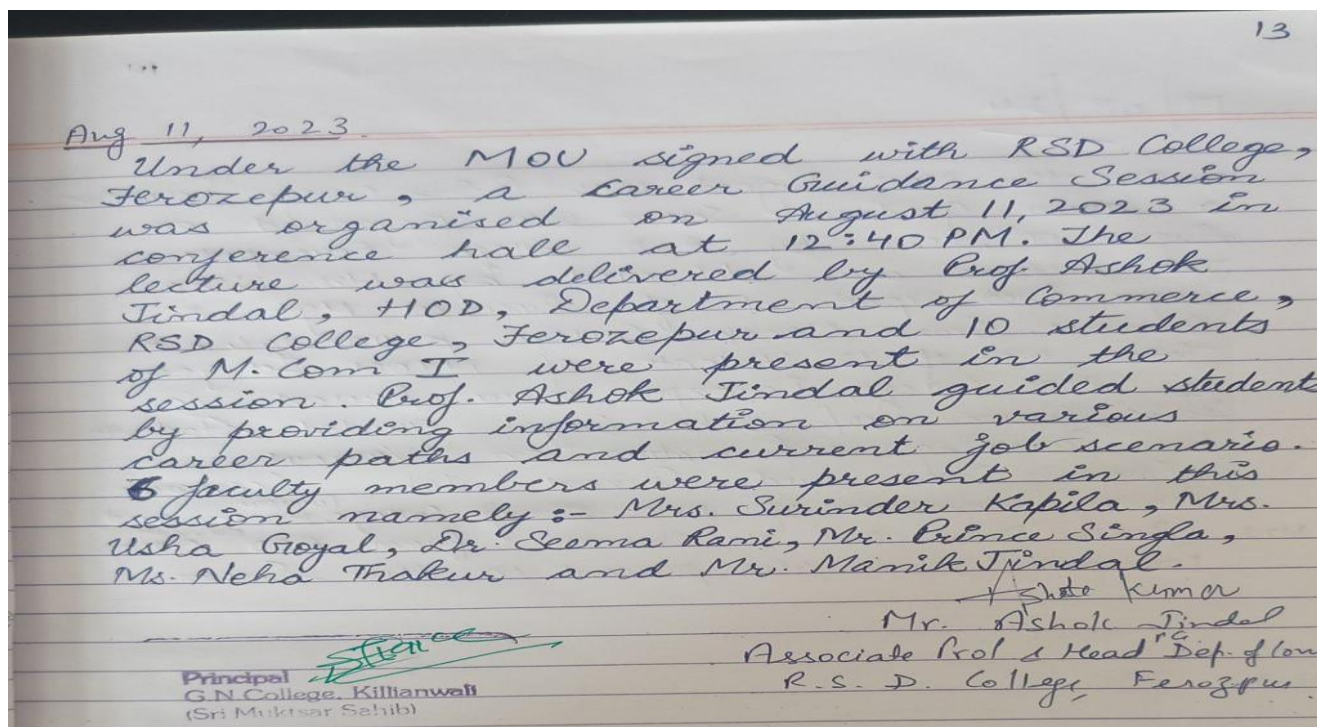 13
Aug 11, 2023.
Under the MOU signed with RSD College,
Ferozepur, a Career Guidance Session
was organised on August 11, 2023 in
conference hall at 12:40 PM. The
lecture was delivered by Prof. Ashok
Jindal, HOD, Department of Commerce,
RSD College, Ferozepur and 10 students
of M. Com I were present in the
session. Prof. Ashok Jindal guided students
by providing information on various
career paths and current job scenario.
6 faculty members were present in this
session namely :- Mrs. Surinder Kapila, Mrs.
Usha Goyal, Dr. Seema Rani, Mr. Prince Singla,
Ms. Neha Thakur and Mr. Manik Jindal.
Kumar
Mr. Ashok Jindal
Associate Prof & Head Dep. of Com
R. S. D. College, Ferozpur
Principal
G.N.College, Killianwali
(Sri Muktsar Sahib)